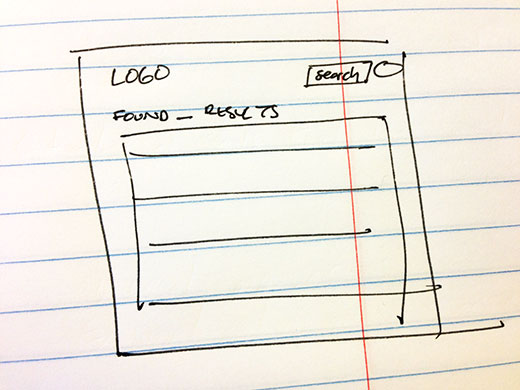 LOGO search
FOUND _ RESULTS